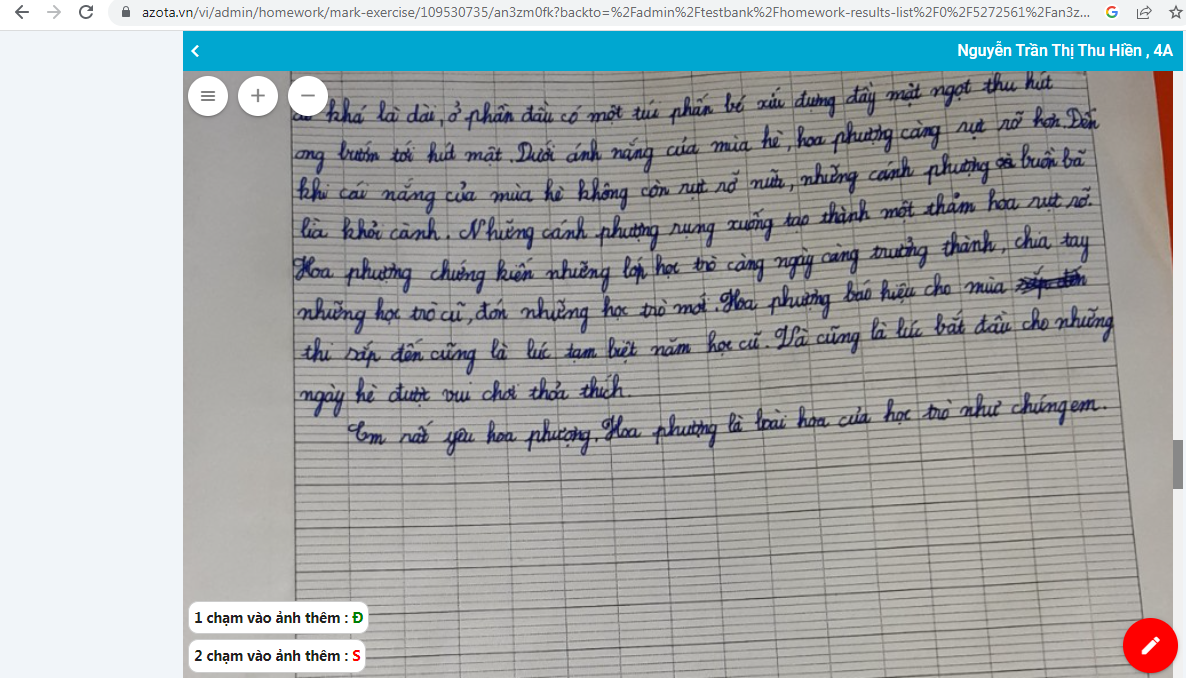 azota.vn/vi/admin/homework/mark-exercise/109530735/an3zm0fk?backto=%2Fadmin%2Ftestbank%2Fhomework-results-list%2F0%2F5272561%2Fan3z...
Nguyễn Trần Thị Thu Hiền , 4A
khá là dài, ở phần đầu có một túi phấn bé xíu đựng đầy mật ngọt thu hút
ong bướm tới hút mật. Dưới ánh nắng của mùa hè, hoa phượng càng rực rỡ hơn. Đến
khi cái nắng của mùa hè không còn rực rỡ nữa, những cánh phượng buồn bã
lìa khỏi cành. Những cánh phượng rụng xuống tạo thành một thảm hoa rực rỡ.
Hoa phượng chứng kiến những lớp học trò càng ngày càng trưởng thành, chia tay
những học trò cũ, đón những học trò mới. Hoa phượng báo hiệu cho mùa
thi sắp đến cũng là lúc tạm biệt năm học cũ. Và cũng là lúc bắt đầu cho những
ngày hè được vui chơi thỏa thích.
Em rất yêu hoa phượng. Hoa phượng là loài hoa của học trò như chúng em.
1 chạm vào ảnh thêm : Đ
2 chạm vào ảnh thêm : S